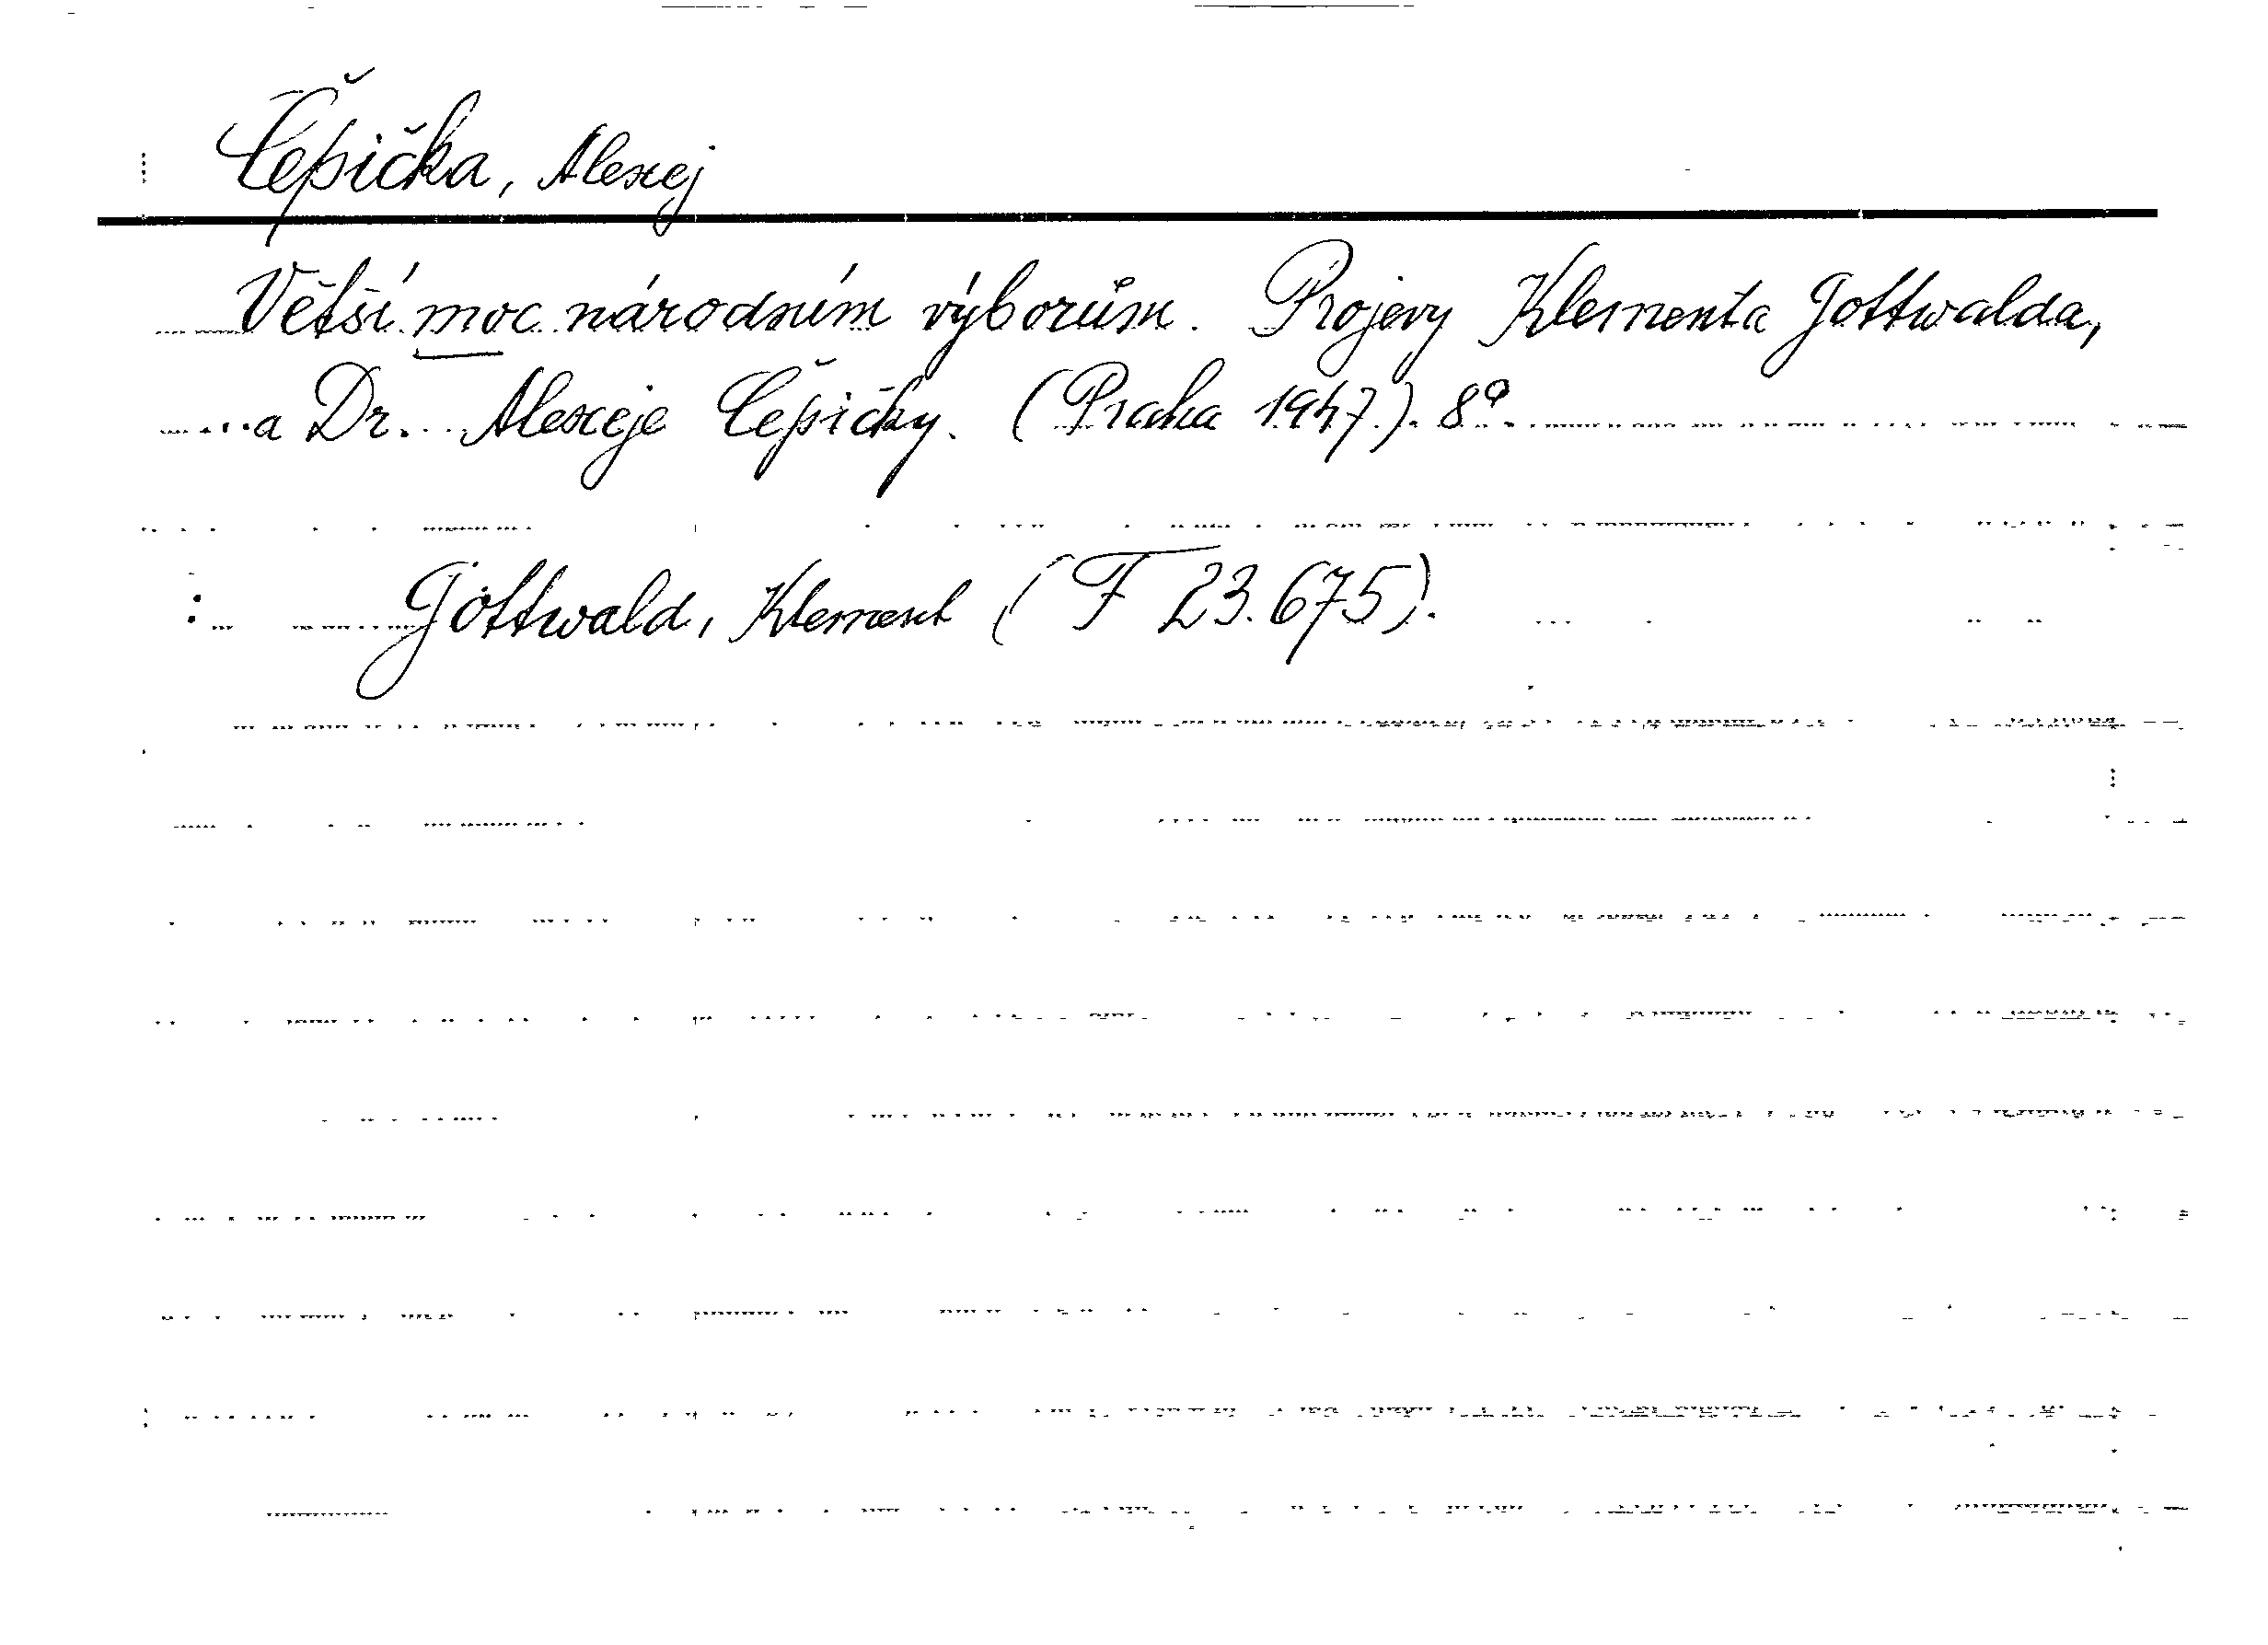 Čepička, Alexej
Větší moc národním výborům. Projevy Klementa Gottwalda,
a Dr. Alexeje Čepičky. (Praha 1947). 8°.
Gottwald, Klement (F 23.675).